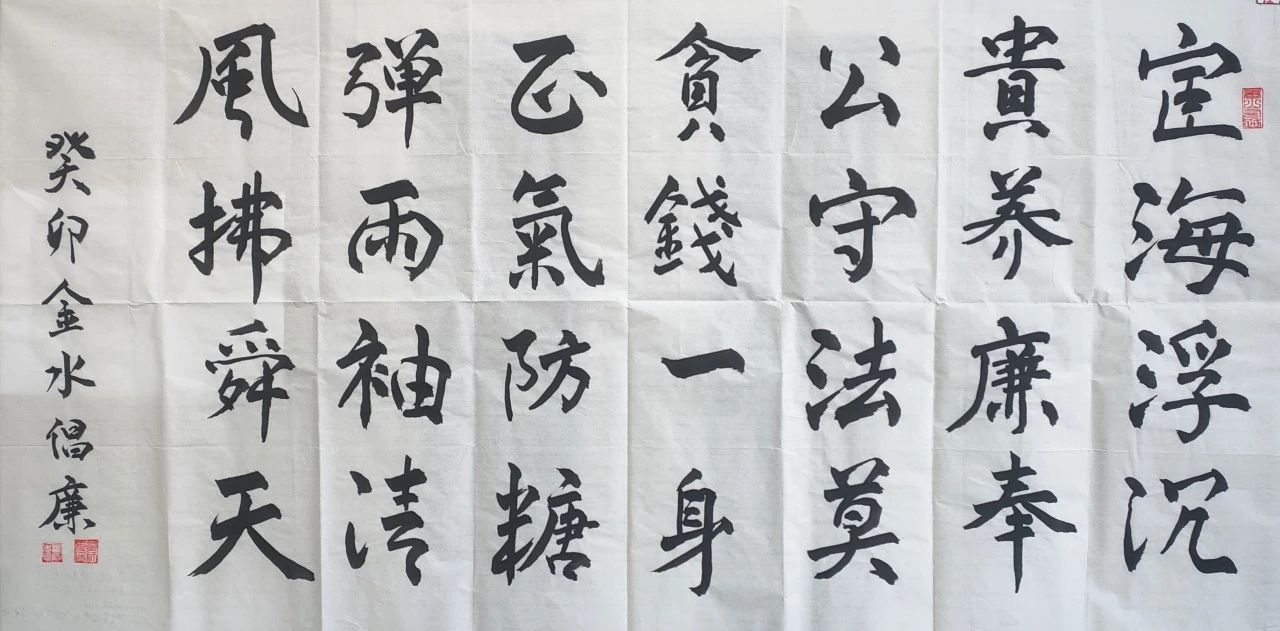 宦海浮沉
貴养廉奉
公守法莫
貪錢一身
正氣防糖
弹雨袖清
風拂舜天
癸卯金水倡廉